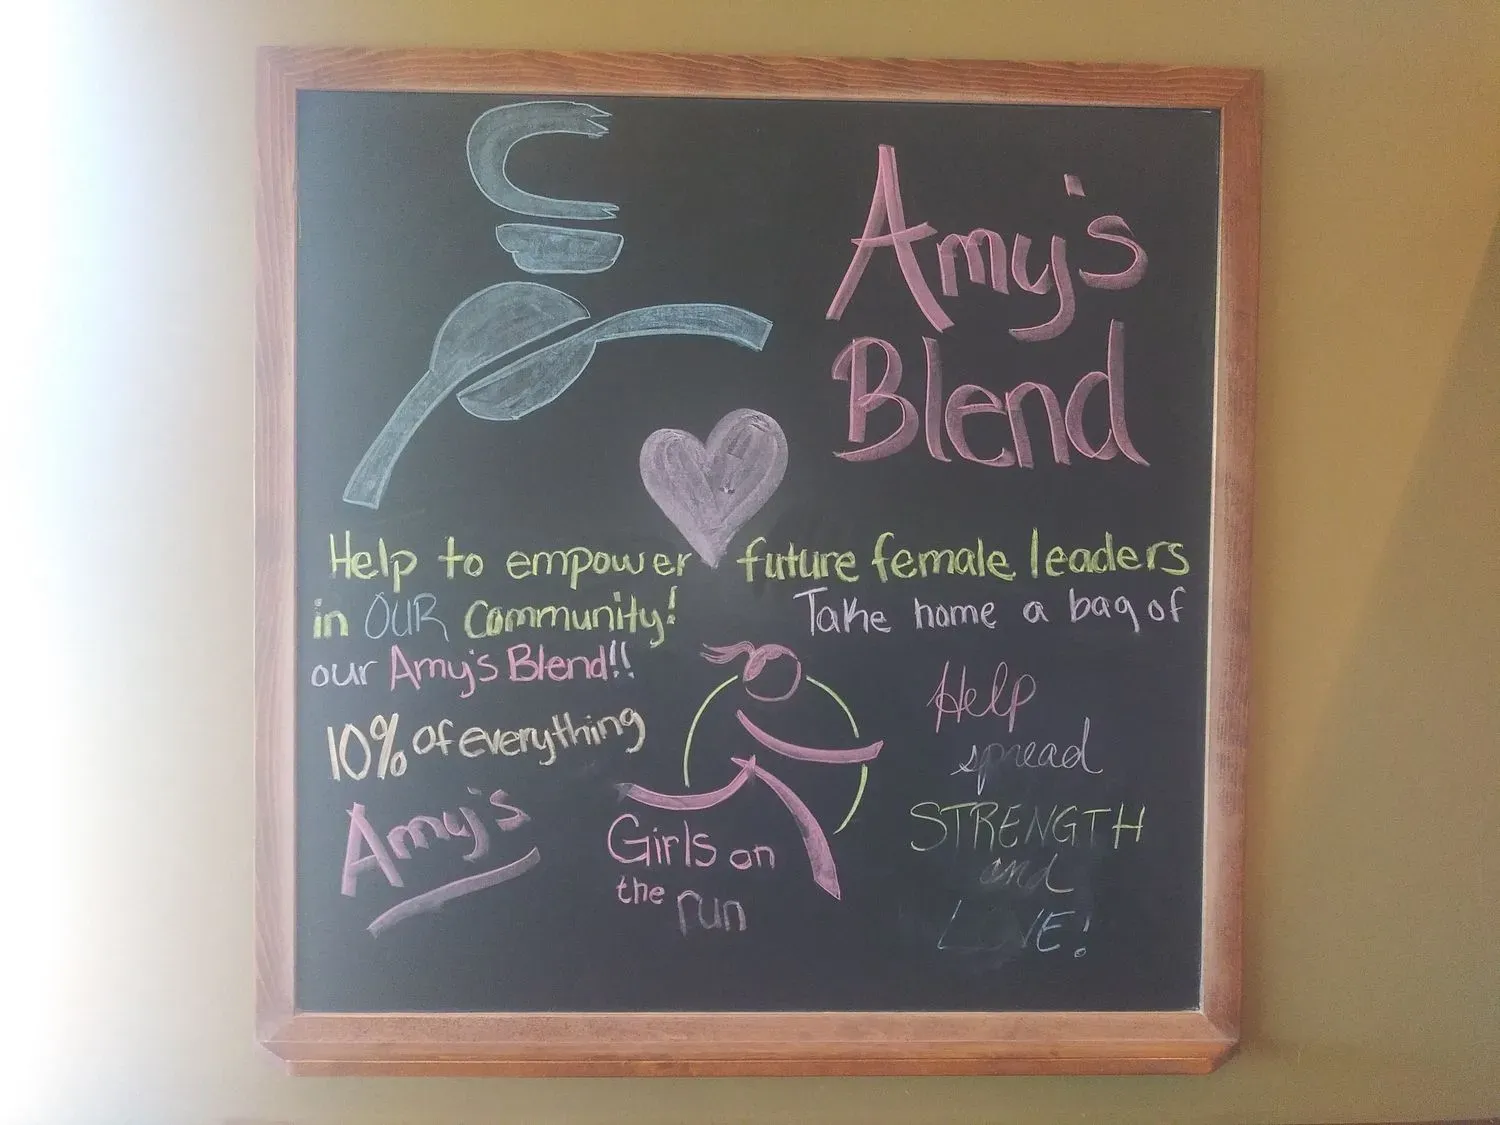 Amy's
Blend
Help to empower future female leaders
in OUR Community! Take home a bag of
our Amy's Blend!!
10% of everything
Amy's
Girls on
the run
Help
spread
STRENGTH
and
LOVE!